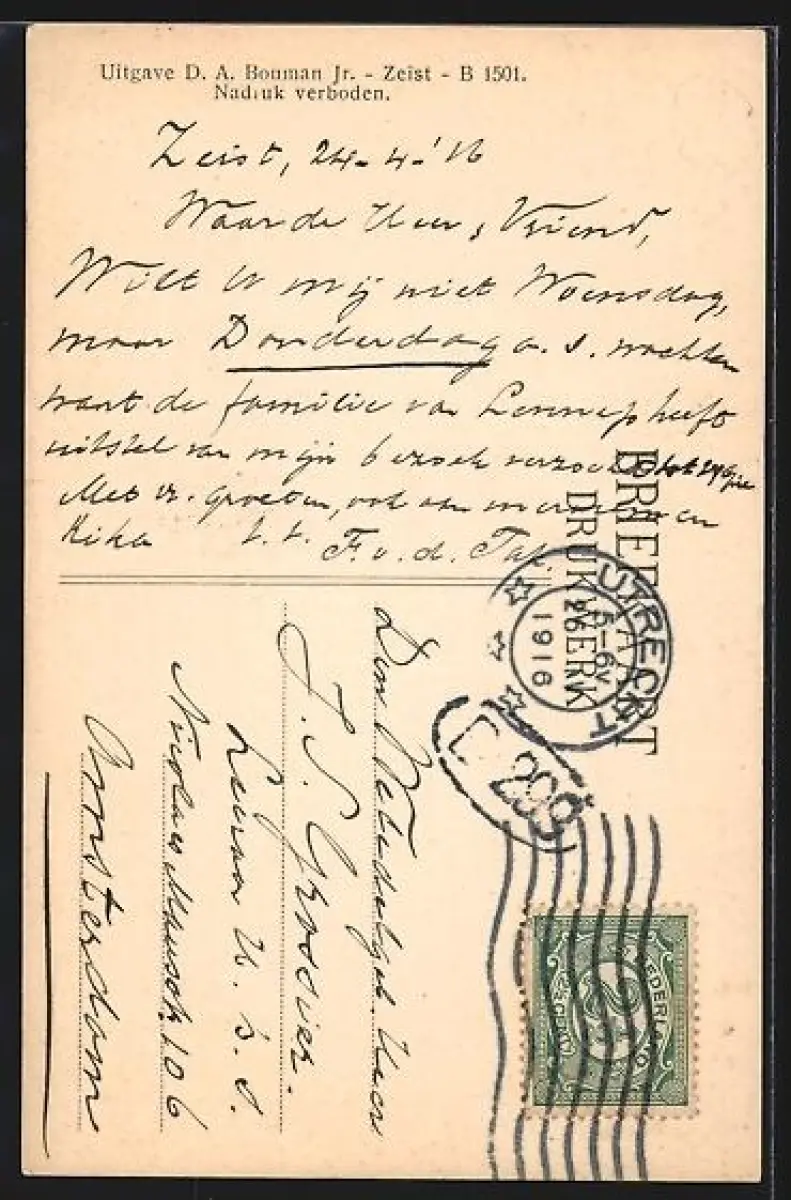 Uitgave D. A. Bouman Jr. - Zeist - B 1501.
Nadruk verboden.
Zeist, 24-4-'16
Waarde Heer, Vriend,
Wilt U mij niet Woensdag,
maar Donderdag a. s. wachten
want de familie van Lennep heeft
uitstel van mijn bezoek verzocht tot
Met vr. groeten, ook van
t. t. F. v. d.
BRIEFKAART
DRUKWERK
UTRECHT
5-6V
26
1916
NEDERLAND
2½
2½ CENT
Den Weledelgeb. Heer
J. S.
Leeraar H. B. S.
Nicolaas 106
Amsterdam